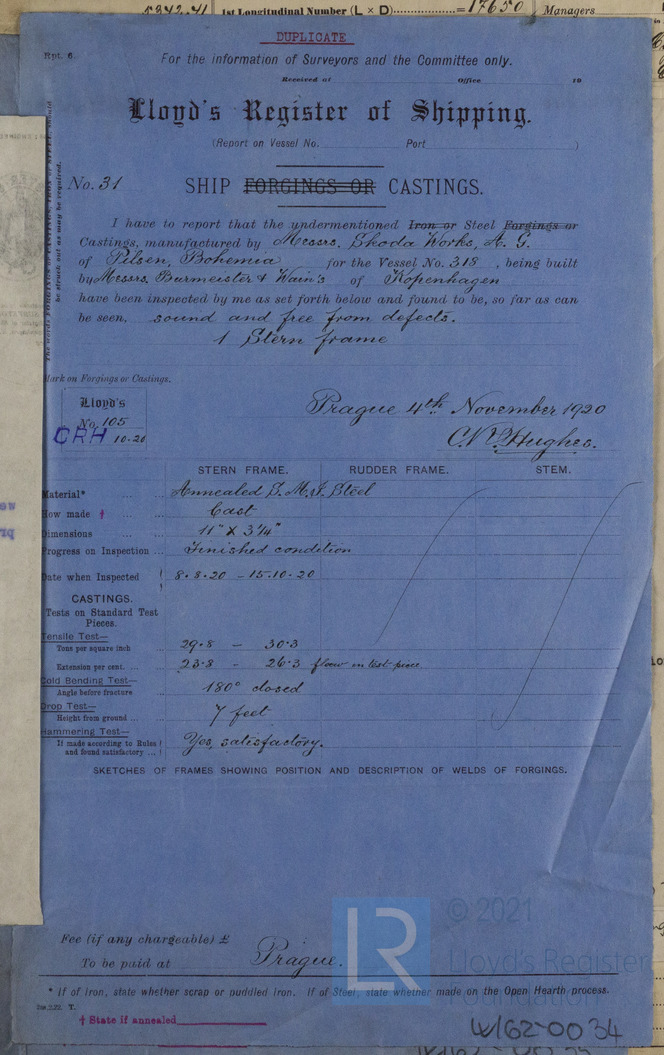 5342.41 1st Longitudinal Number (L × D) = 17650 Managers
DUPLICATE
Rpt. 6.
For the information of Surveyors and the Committee only.
Received at Office 19
Lloyd's Register of Shipping.
(Report on Vessel No. Port )
No. 31
SHIP FORGINGS OR CASTINGS.
I have to report that the undermentioned Iron or Steel Forgings or
Castings, manufactured by Messrs. Skoda Works, A. G.
of Pilsen, Bohemia for the Vessel No. 318, being built
by Messrs. Burmeister & Wain's of Kopenhagen
have been inspected by me as set forth below and found to be, so far as can
be seen, sound and free from defects.
1 Stern frame
Mark on Forgings or Castings.
Lloyd's
No. 105
CRH 10.20
Prague 4th November 1920
Hughes.
STERN FRAME. RUDDER FRAME. STEM.
Material* Annealed S. M. Steel
How made † Cast
Dimensions 11" X 3¼"
Progress on Inspection Finished condition
Date when Inspected 8.8.20 - 15.10.20
CASTINGS.
Tests on Standard Test
Pieces.
Tensile Test—
Tons per square inch 29.8 - 30.3
Extension per cent. 23.8 - 26.3 flaw in test piece
Cold Bending Test—
Angle before fracture 180° closed
Drop Test—
Height from ground 7 feet
Hammering Test—
If made according to Rules
and found satisfactory Yes, satisfactory.
SKETCHES OF FRAMES SHOWING POSITION AND DESCRIPTION OF WELDS OF FORGINGS.
Fee (if any chargeable) £
To be paid at Prague.
* If of Iron, state whether scrap or puddled Iron. If of Steel, state whether made on the Open Hearth process.
† State if annealed
LR
© 2021
Lloyd's Register
Foundation
W162-0034